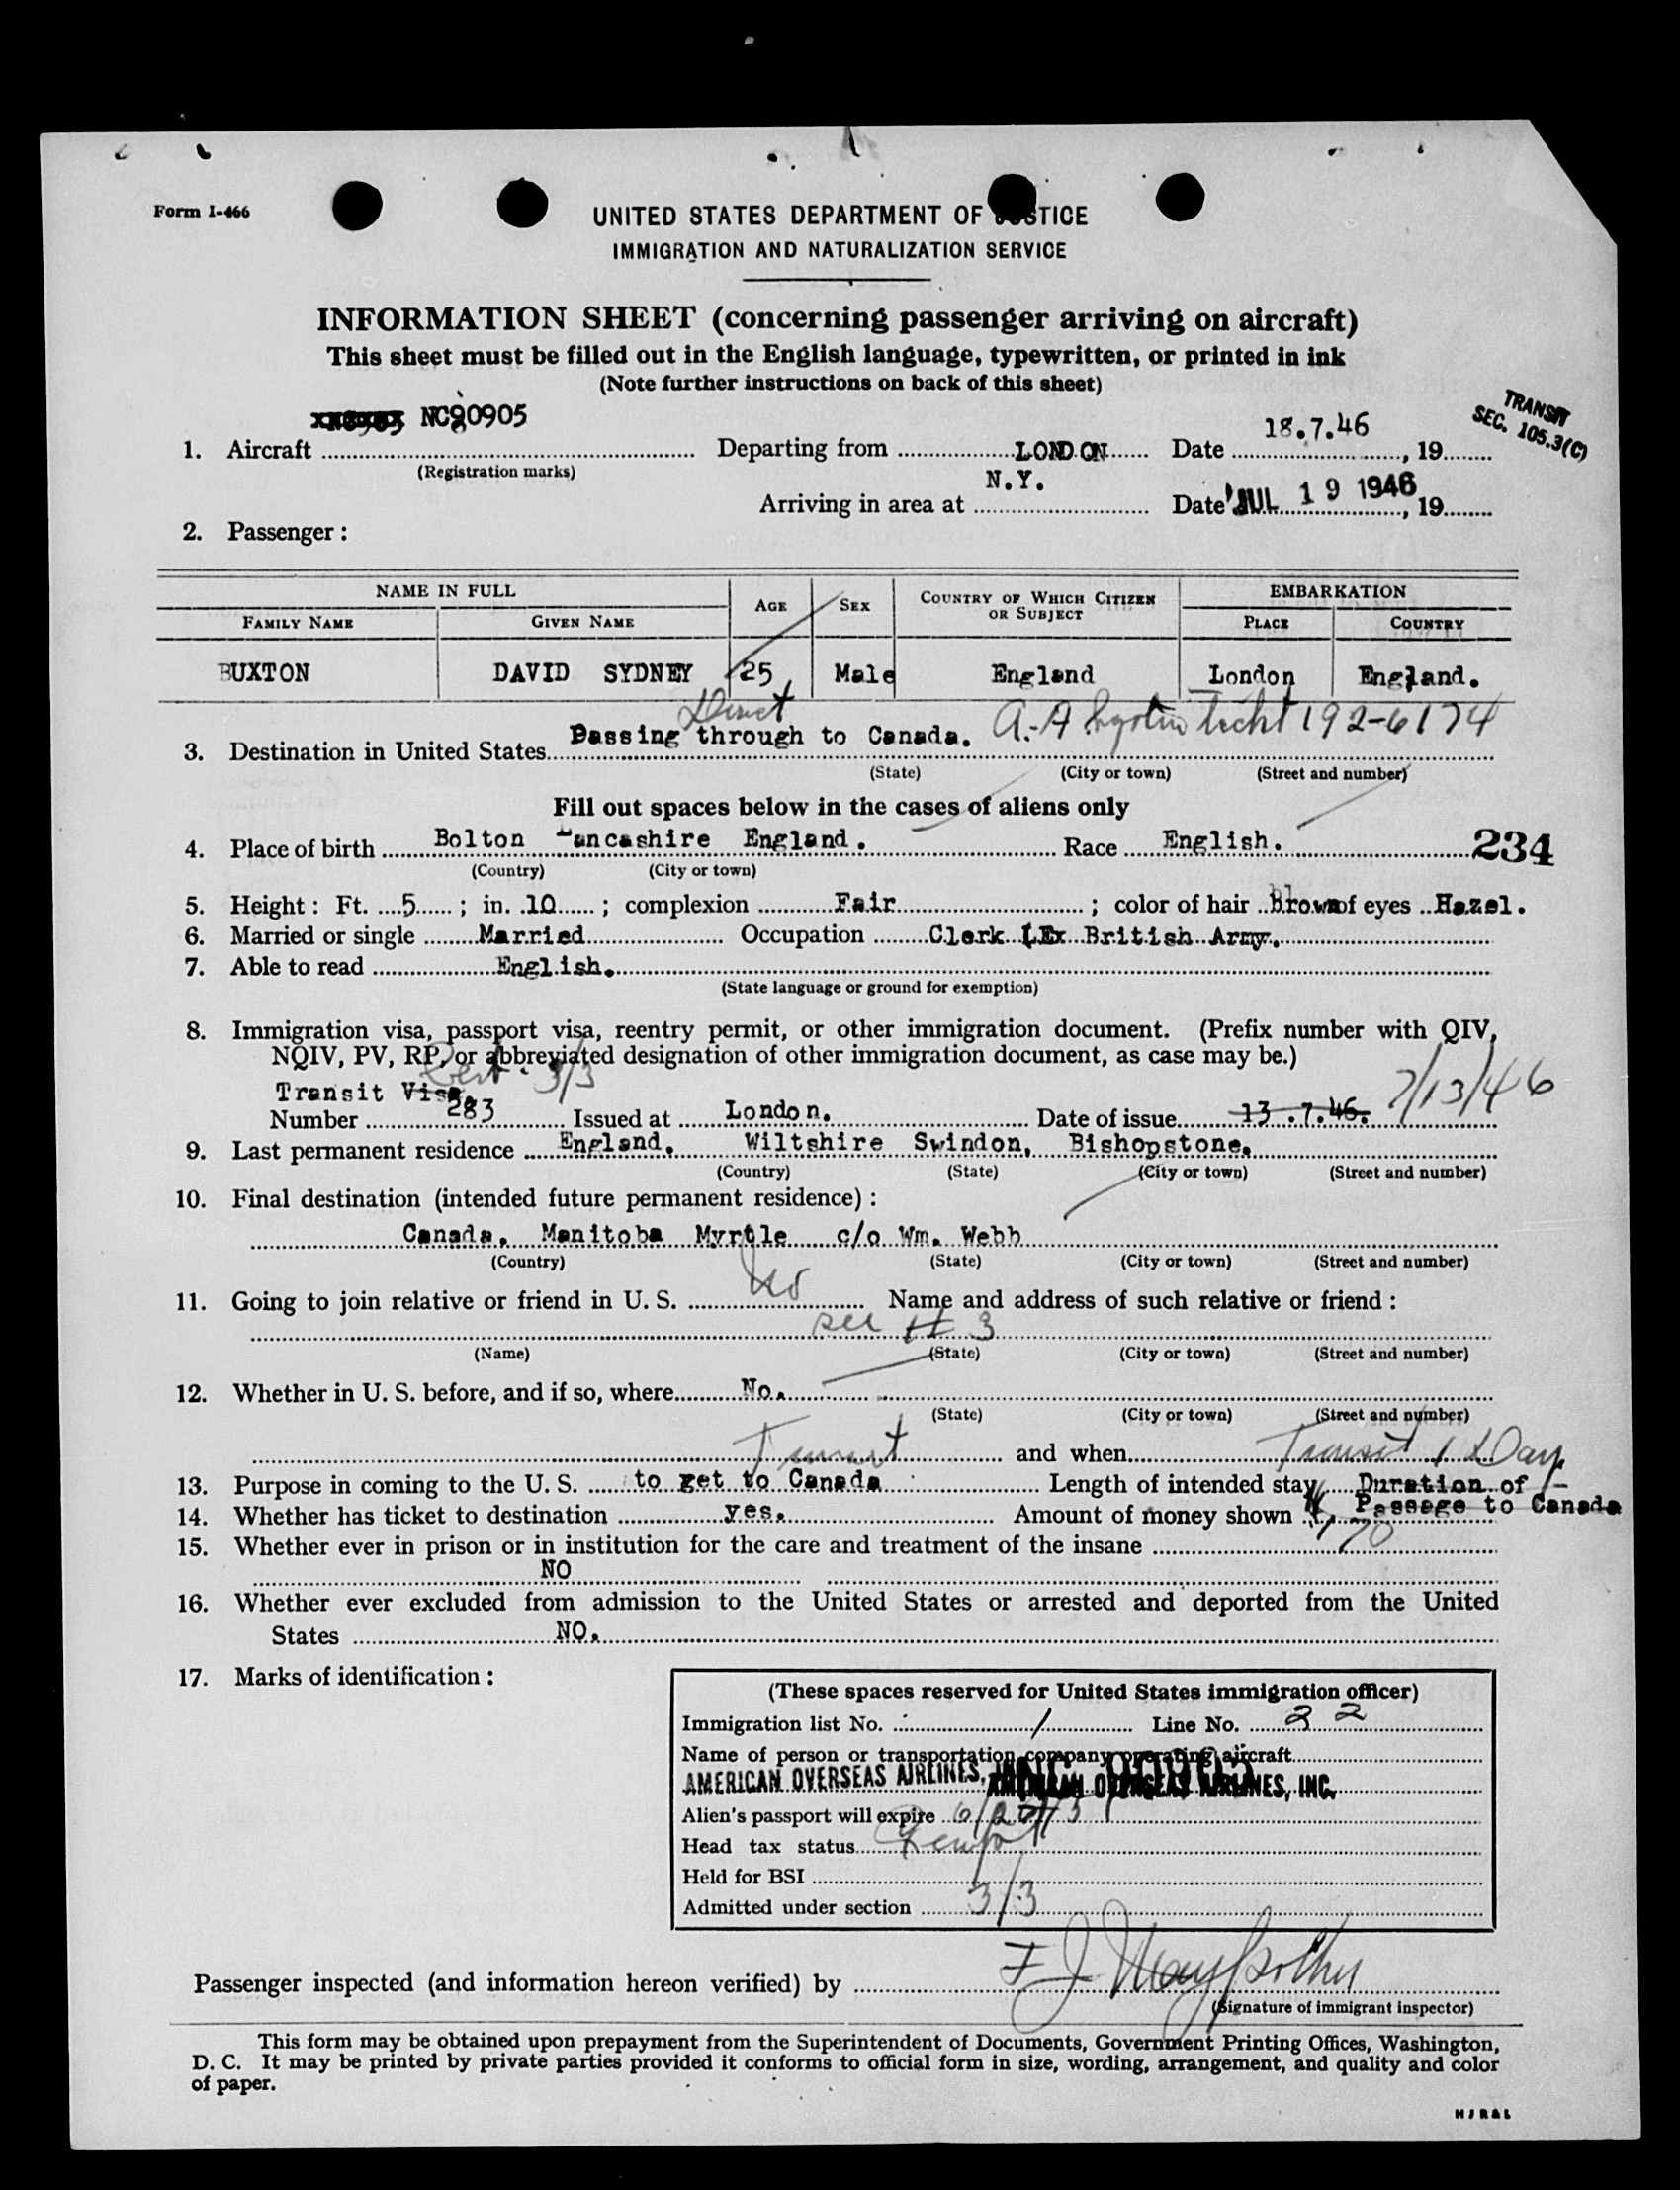 Form I-466
UNITED STATES DEPARTMENT OF JUSTICE
IMMIGRATION AND NATURALIZATION SERVICE
INFORMATION SHEET (concerning passenger arriving on aircraft)
This sheet must be filled out in the English language, typewritten, or printed in ink
(Note further instructions on back of this sheet)
TRANSIT
SEC. 105.3(C)
NC90905
18.7.46
1. Aircraft Departing from LONDON Date , 19
(Registration marks)
N.Y.
Arriving in area at Date JUL 19 1946, 19
2. Passenger:
NAME IN FULL AGE SEX COUNTRY OF WHICH CITIZEN OR SUBJECT EMBARKATION
FAMILY NAME GIVEN NAME PLACE COUNTRY
BUXTON DAVID SYDNEY 25 Male England London England.
Direct
3. Destination in United States Passing through to Canada. 192-6174
(State) (City or town) (Street and number)
Fill out spaces below in the cases of aliens only
4. Place of birth Bolton Lancashire England. Race English. 234
(Country) (City or town)
5. Height: Ft. 5; in. 10; complexion Fair; color of hair Brown of eyes Hazel.
6. Married or single Married Occupation Clerk (Ex British Army.
7. Able to read English.
(State language or ground for exemption)
8. Immigration visa, passport visa, reentry permit, or other immigration document. (Prefix number with QIV,
NQIV, PV, RP, or abbreviated designation of other immigration document, as case may be.)
Cert. 3/3
Transit Visa.
Number 283 Issued at London. Date of issue 13.7.46. 7/13/46
9. Last permanent residence England. Wiltshire Swindon, Bishopstone.
(Country) (State) (City or town) (Street and number)
10. Final destination (intended future permanent residence):
Canada. Manitoba Myrtle c/o Wm. Webb
(Country) (State) (City or town) (Street and number)
11. Going to join relative or friend in U. S. No Name and address of such relative or friend:
see # 3
(Name) (State) (City or town) (Street and number)
12. Whether in U. S. before, and if so, where No.
(State) (City or town) (Street and number)
Transit and when Transit 1 Day
13. Purpose in coming to the U. S. to get to Canada Length of intended stay Duration of
Passage to Canada
14. Whether has ticket to destination yes. Amount of money shown 70
15. Whether ever in prison or in institution for the care and treatment of the insane
NO
16. Whether ever excluded from admission to the United States or arrested and deported from the United
States NO.
17. Marks of identification:
(These spaces reserved for United States immigration officer)
Immigration list No. 1 Line No. 22
Name of person or transportation company operating aircraft
AMERICAN OVERSEAS AIRLINES, AMERICAN OVERSEAS AIRLINES, INC.
Alien's passport will expire
Head tax status
Held for BSI
Admitted under section 3/3
Passenger inspected (and information hereon verified) by
(Signature of immigrant inspector)
This form may be obtained upon prepayment from the Superintendent of Documents, Government Printing Offices, Washington,
D. C. It may be printed by private parties provided it conforms to official form in size, wording, arrangement, and quality and color
of paper.
HJR&L